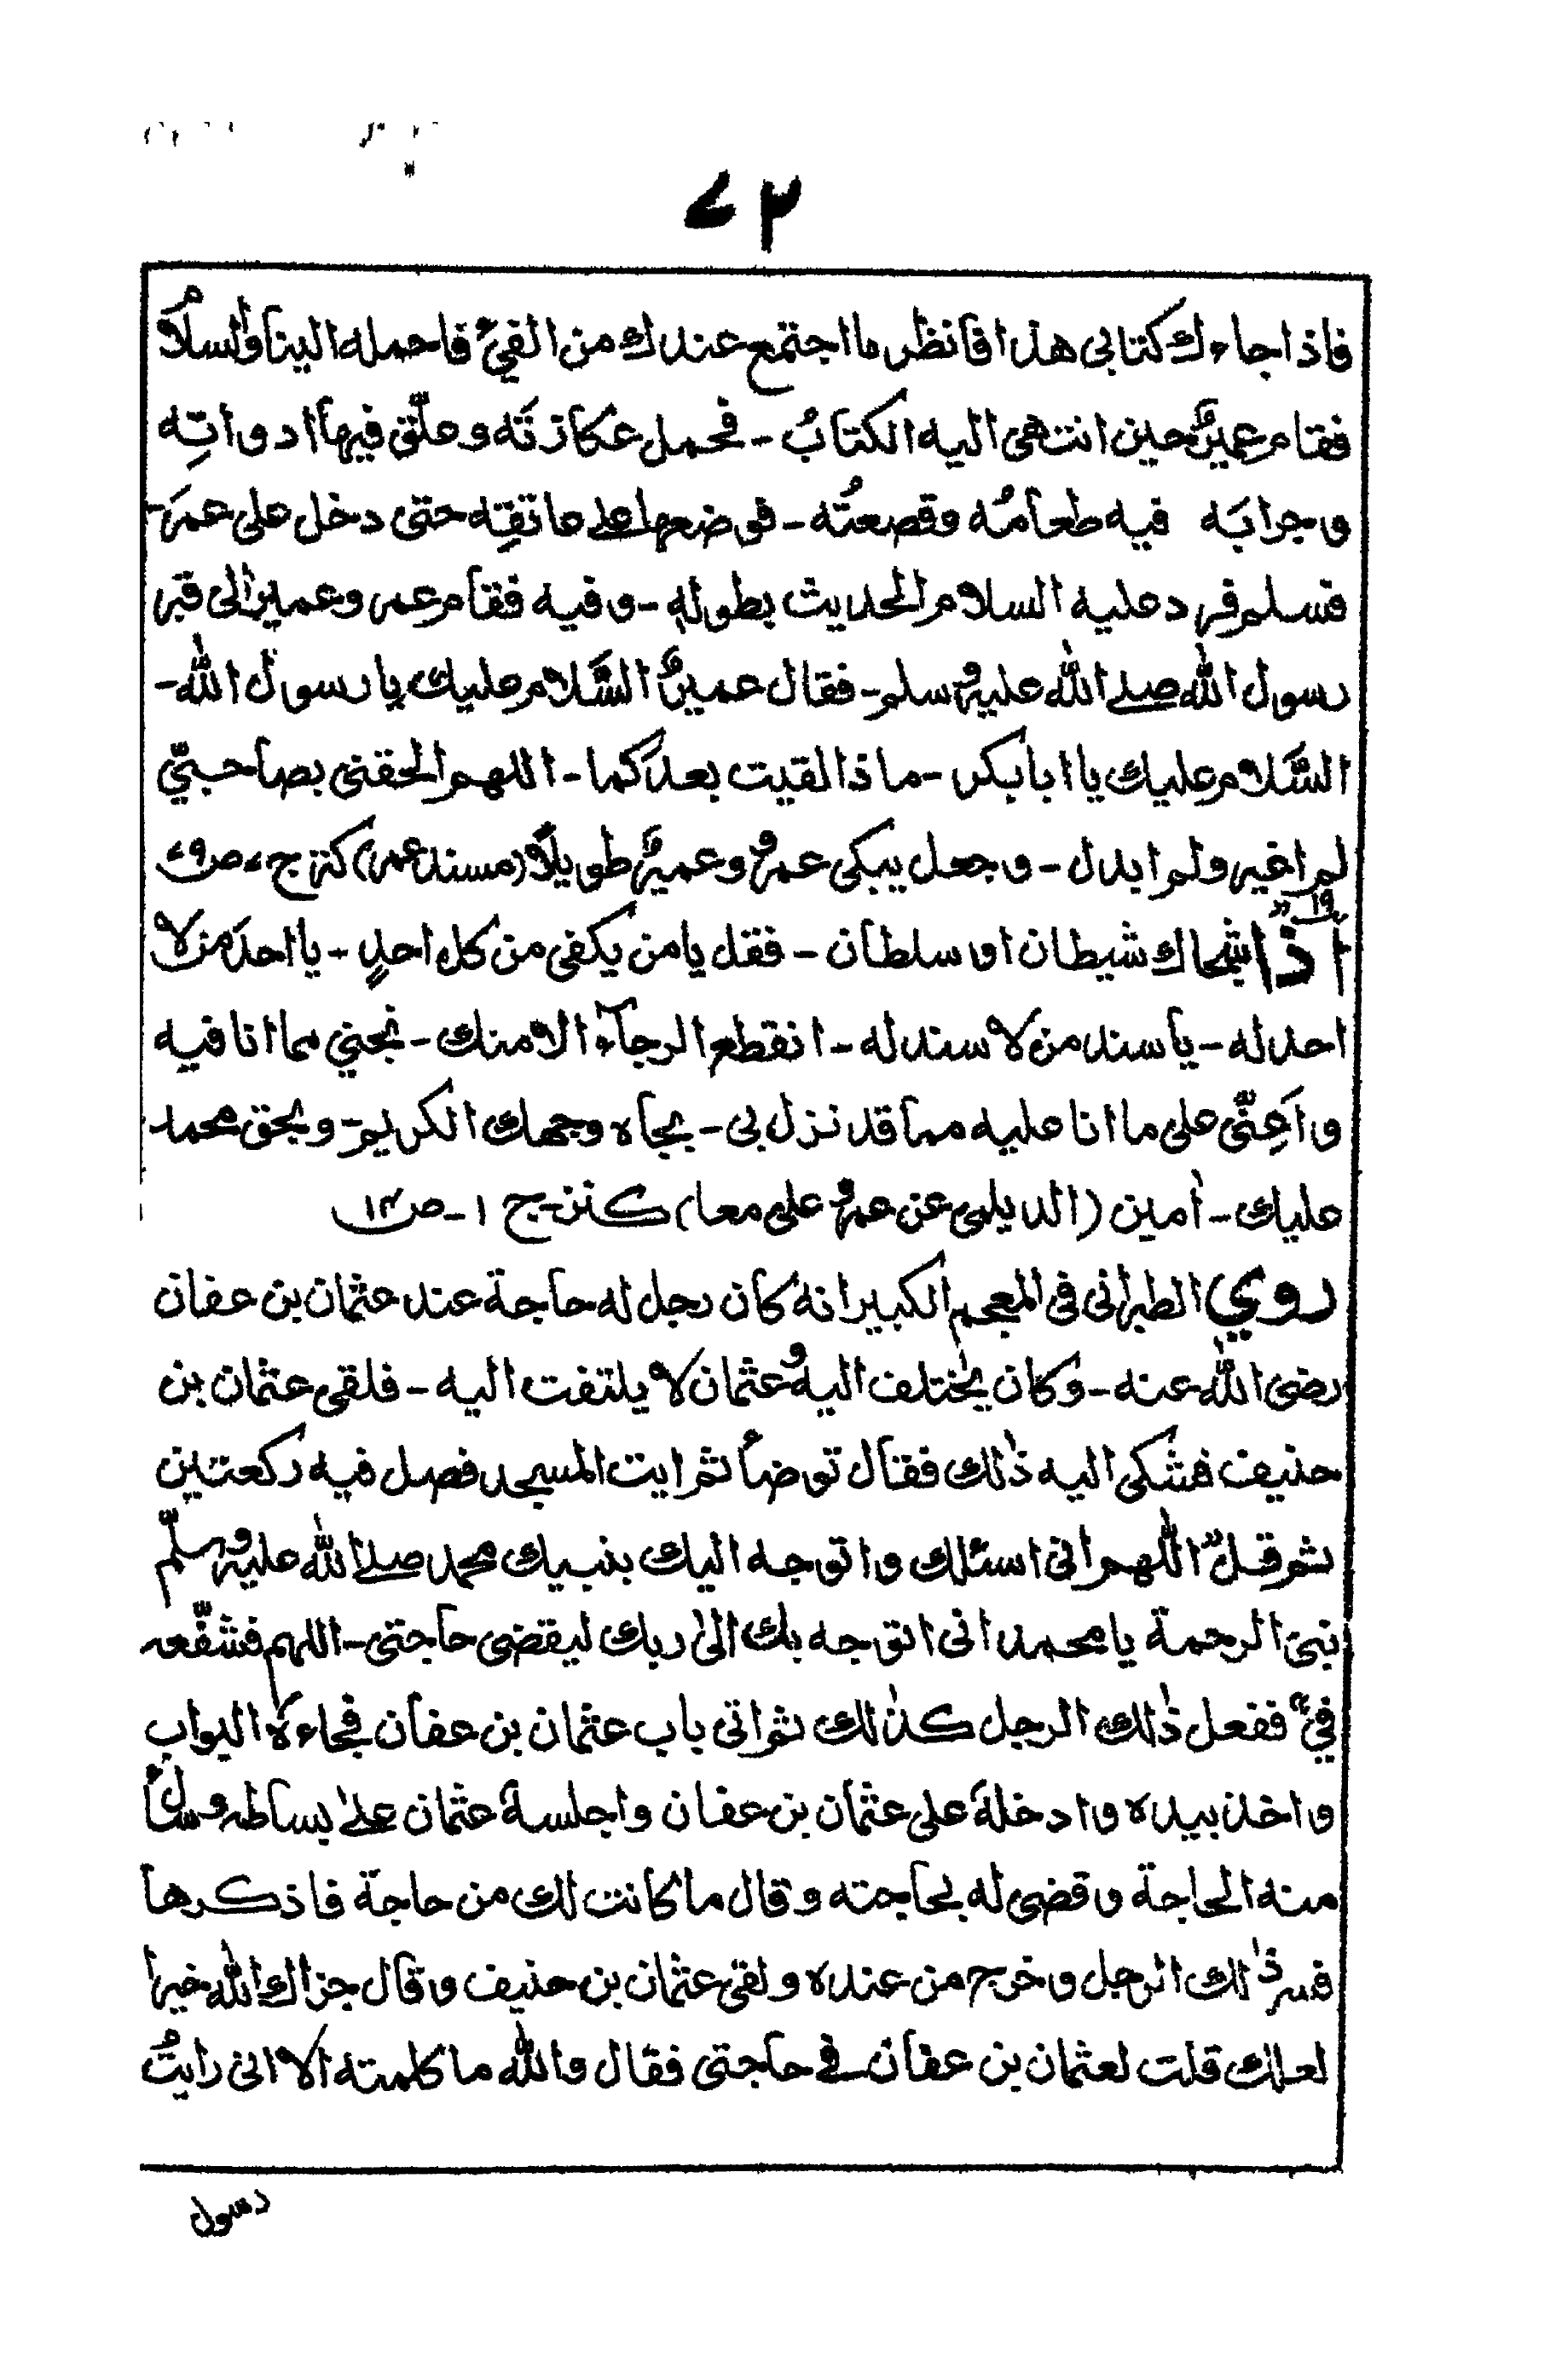 ٧٢
فاذا جاءك كتابى هذا فانظر ما اجتمع عندك من الفيء فاحمله الينا والسلامُ
فقام عميرٌ حين انتهى اليه الكتابُ - فحمل عكازتَه وعلّق فيها ادواتِه
وجرابَه فيه طعامُه وقصعتُه - فوضعها على عاتقِه حتى دخل على عمرَ -
فسلم فرد عليه السلام الحديث بطولهٖ - وفيه فقام عمر وعمير الى قبر
رسول الله صلى الله عليه وسلم - فقال عميرٌ السَّلام عليك يا رسول الله -
السَّلام عليك يا ابا بكر - ماذا لقيت بعدكما - اللهم الحقنى بصاحبيّ
لم اغير ولم ابدل - وجعل يبكى عمرُ وعميرٌ طويلاً (مسند عمر) كنز ج ٧ ص ٧٩
١٩ اذا شجاك شيطان او سلطان - فقل يا من يكفى من كل احدٍ - يا احدَ من لا
احد له - يا سند من لا سند له - انقطع الرجاء الا منك - نجني مما انا فيه
واَعِنّى على ما انا عليه مما قد نزل بى - بجاه وجهك الكريم - وبحق محمد
عليك - اٰمين (الديلمى عن عمرو على معا) كنز ج ١ - ص ١٣
روي الطبرانى فى المعجم الكبير انه كان رجل له حاجة عند عثمان بن عفان
رضى الله عنه - وكان يختلف اليه وعثمان لا يلتفت اليه - فلقى عثمان بن
حنيف فشكى اليه ذٰلك فقال توضأ ثم ايت المسجد فصل فيه ركعتين
ثم قل اللّهم انى اسئلك واتوجه اليك بنبيك محمد صلى الله عليه وسلّم
نبى الرحمة يا محمد انى اتوجه بك الىٰ ربك ليقضى حاجتى - اللهم فشفّعه
فيّ ففعل ذٰلك الرجل كذٰلك ثم اتى باب عثمان بن عفان فجاءه البواب
واخذ بيده وادخله على عثمان بن عفان واجلسه عثمان علىٰ بساطه وسأل
منه الحاجة وقضى له بحاجته وقال ما كانت لك من حاجة فاذكرها
فسر ذٰلك الرجل وخرج من عنده ولقى عثمان بن حنيف وقال جزاك الله خيرا
لعلك قلت لعثمان بن عفان فى حاجتى فقال والله ما كلمته الا انى رايتُ
رسول